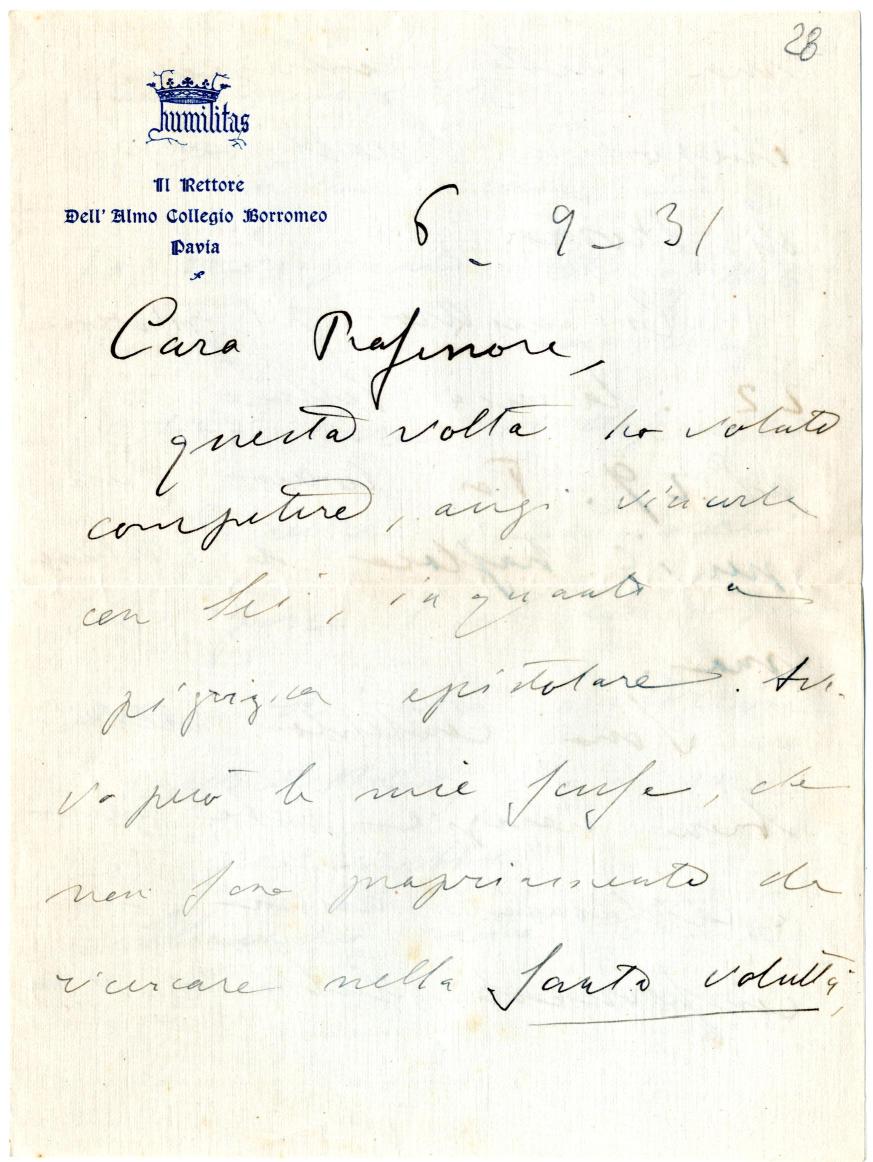 28
humilitas
Il Rettore
Dell' Almo Collegio Borromeo
Pavia
6 - 9 - 31
Caro Professore,
questa volta ho voluto
competere, anzi vincerla
con Lei, in quanto a
pigrizia epistolare.
però le mie scuse, che
non sono propriamente da
ricercare nella santa voluttà,